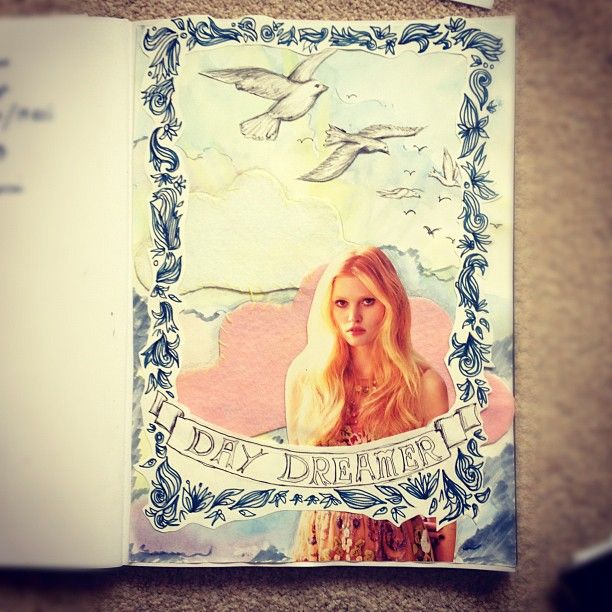 DAY DREAMER